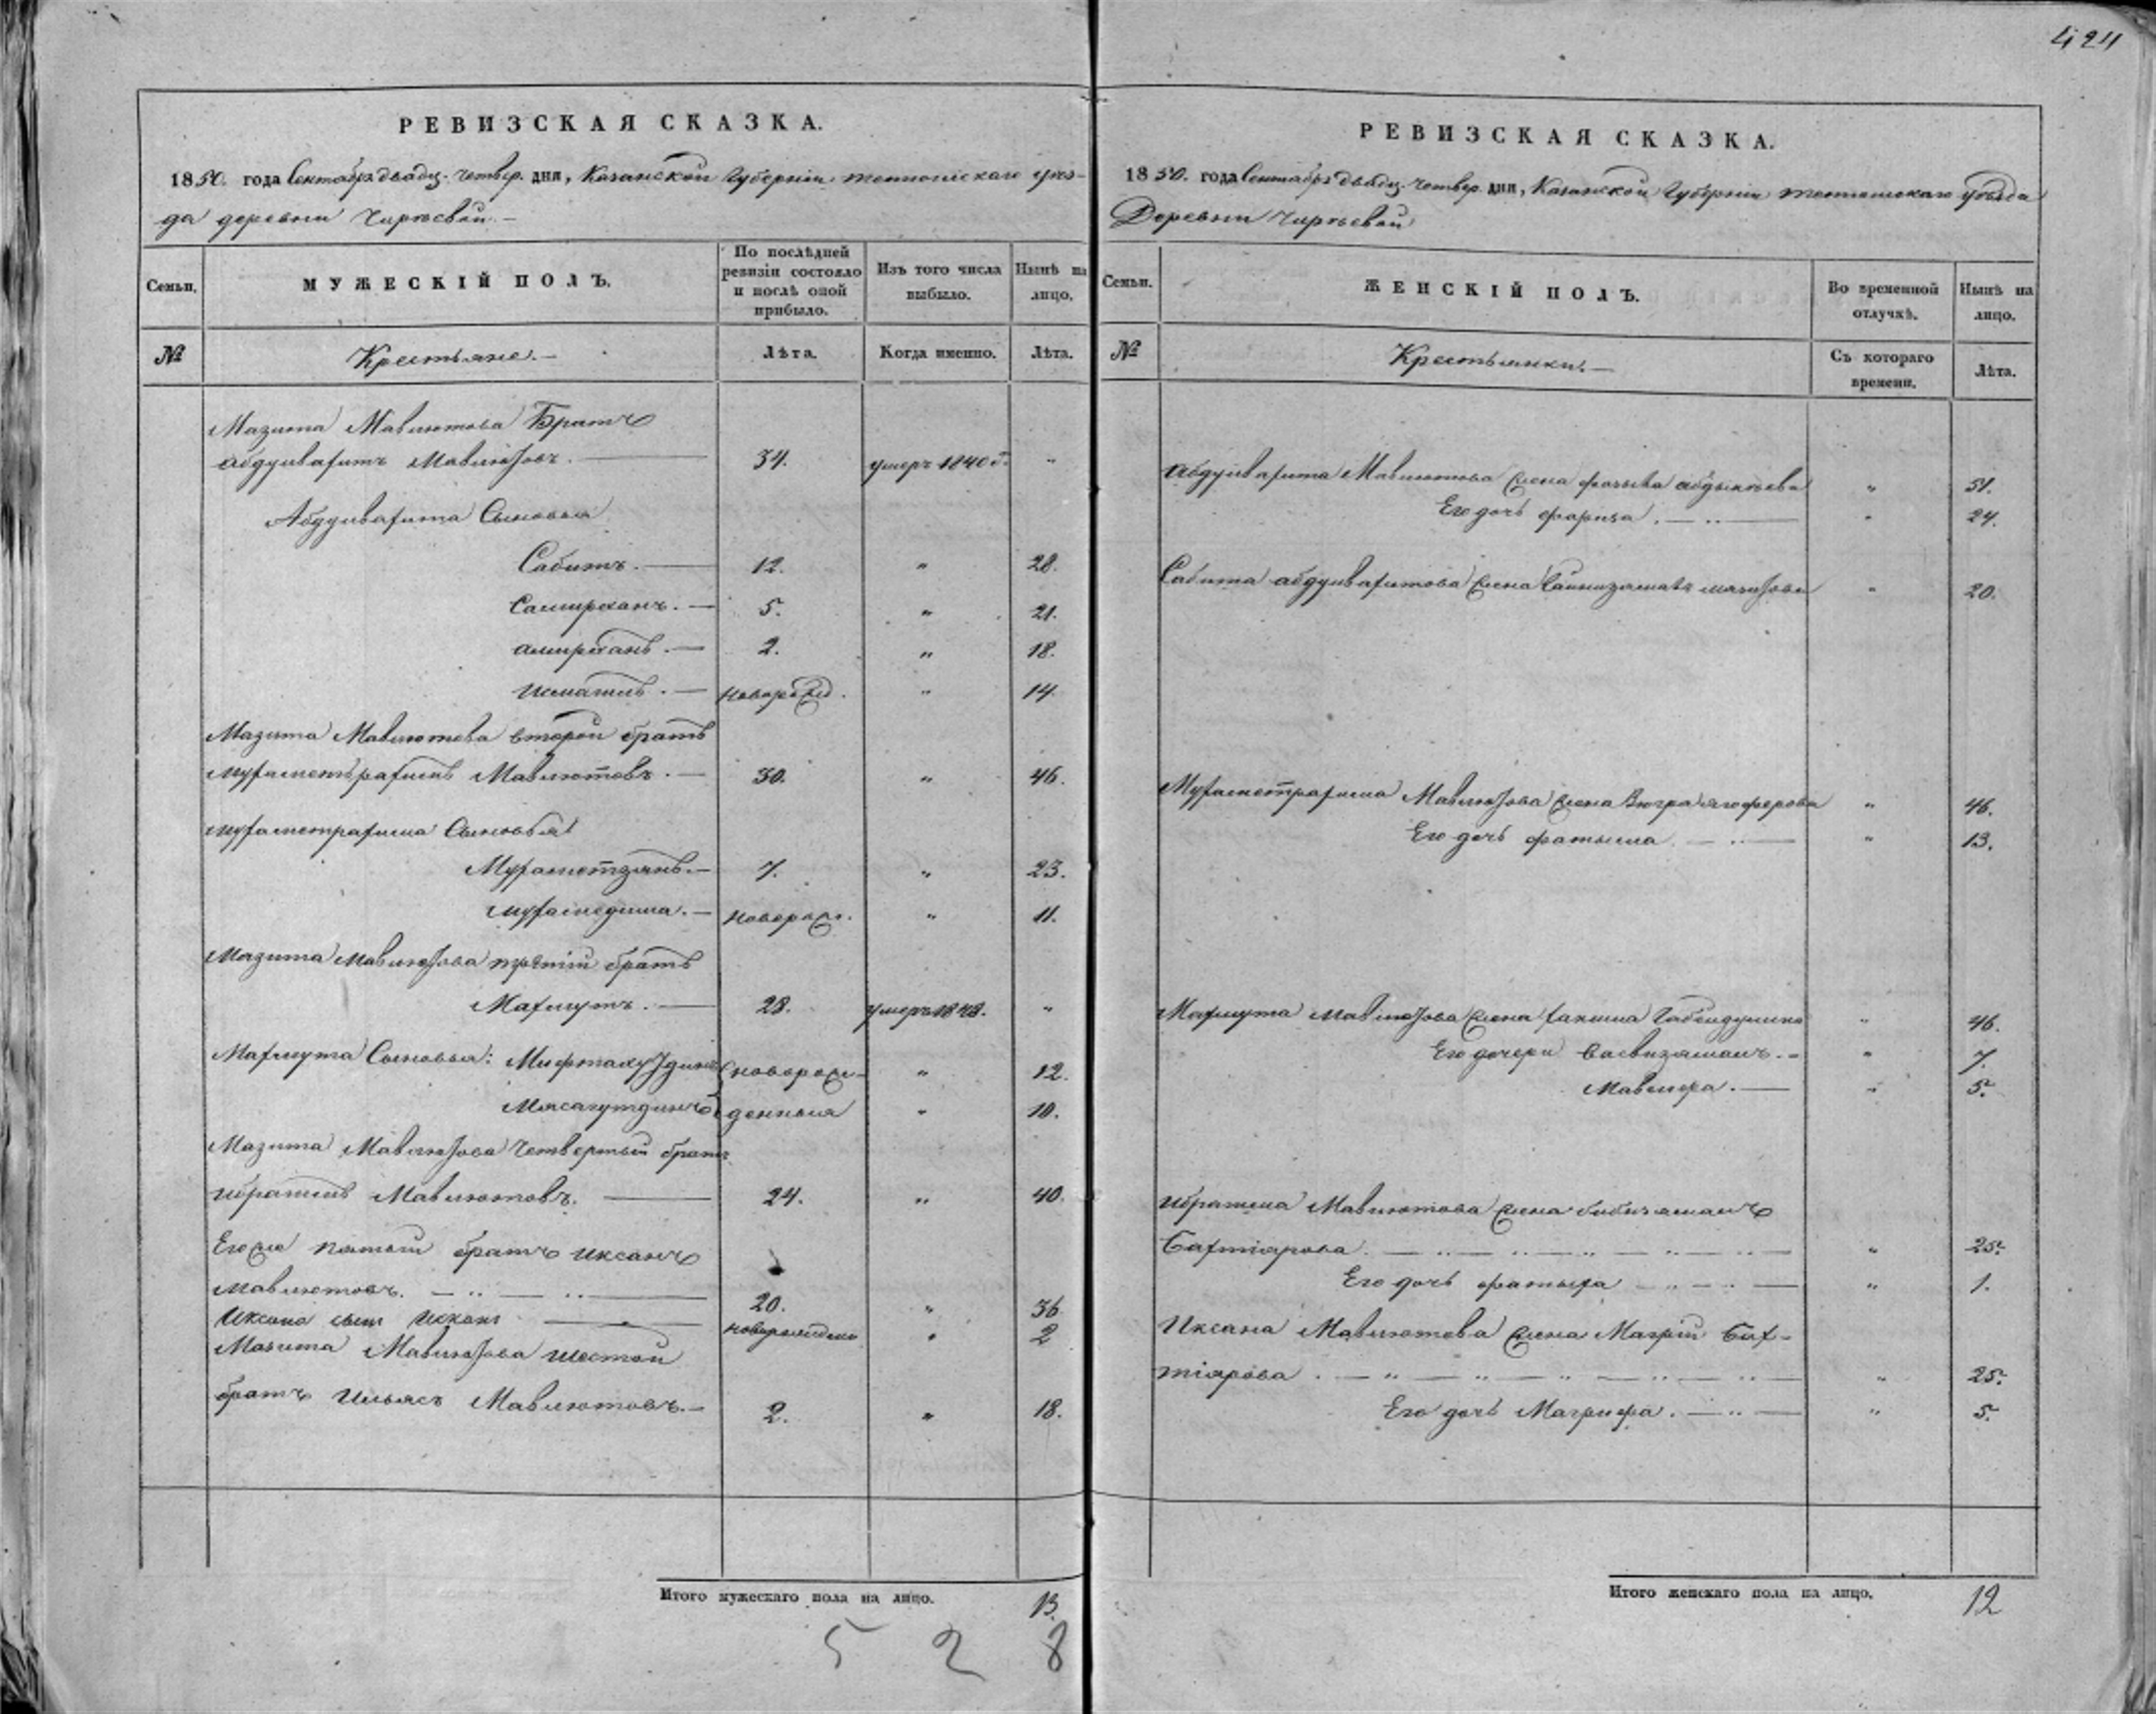 424
РЕВИЗСКАЯ СКАЗКА.
1850. года Сентября двадц. четвер. дня, Казанской Губерніи тетюшскаго уѣз-
да деревни
Семьи.
МУЖЕСКІЙ ПОЛЪ.
По послѣдней ревизіи состояло и послѣ оной прибыло.
Изъ того числа выбыло.
Нынѣ на лицо.
№
Крестьяне. —
Лѣта.
Когда именно.
Лѣта.
Мазита Мавлютова Братъ
Мавлютовъ. — 34. умеръ 1840 „
Сыновья
Сабитъ. — 12. „ 28.
Самирханъ. — 5. „ 21.
амирханъ. — 2. „ 18.
исмагилъ. — Новорожд. „ 14.
Мазита Мавлютова второй братъ
мухаметрахимъ Мавлютовъ. — 30. „ 46.
мухаметрахима Сыновья
Мухаметзянъ. — 7. „ 23.
мухамедша. — Новорож. „ 11.
Мазита мавлютова третій братъ
Махмутъ. — 28. умеръ 1848. „
Махмута Сыновья: Мифтахутдинъ новорож- „ 12.
Мясагутдинъ денныя „ 10.
Мазита Мавлютова Четвертый братъ
ибрагимъ Мавлютовъ. — 24. „ 40.
Его же пятый братъ иксанъ
мавлютовъ. — 20. „ 36
Иксана сынъ новорожденъ „ 2
Мазита Мавлютова шестой
братъ ильясъ Мавлютовъ. — 2. „ 18.
Итого мужескаго пола на лицо. 13.
5 2 8
РЕВИЗСКАЯ СКАЗКА.
1850. года Сентября двадц. четвер. дня, Казанской Губерніи тетюшскаго уѣзда
Деревни
Семьи.
ЖЕНСКІЙ ПОЛЪ.
Во временной отлучкѣ.
Нынѣ на лицо.
№
Крестьянки. —
Съ котораго времени.
Лѣта.
Мавлютова жена „ 51.
Его дочь фариза. — „ 24.
Сабита жена „ 20.
Мухаметрахима Мавлютова жена „ 46.
Его дочь фатыма — „ 13.
Махмута мавлютова жена „ 46.
Его дочери „ 7.
— „ 5.
ибрагима Мавлютова жена бибизяманъ
Бахтіярова. — „ 25.
Его дочь фатыха — „ 1.
Иксана Мавлютова жена Магрій Бах-
тіярова. — „ 25.
Его дочь Магрифа. — „ 5.
Итого женскаго пола на лицо. 12